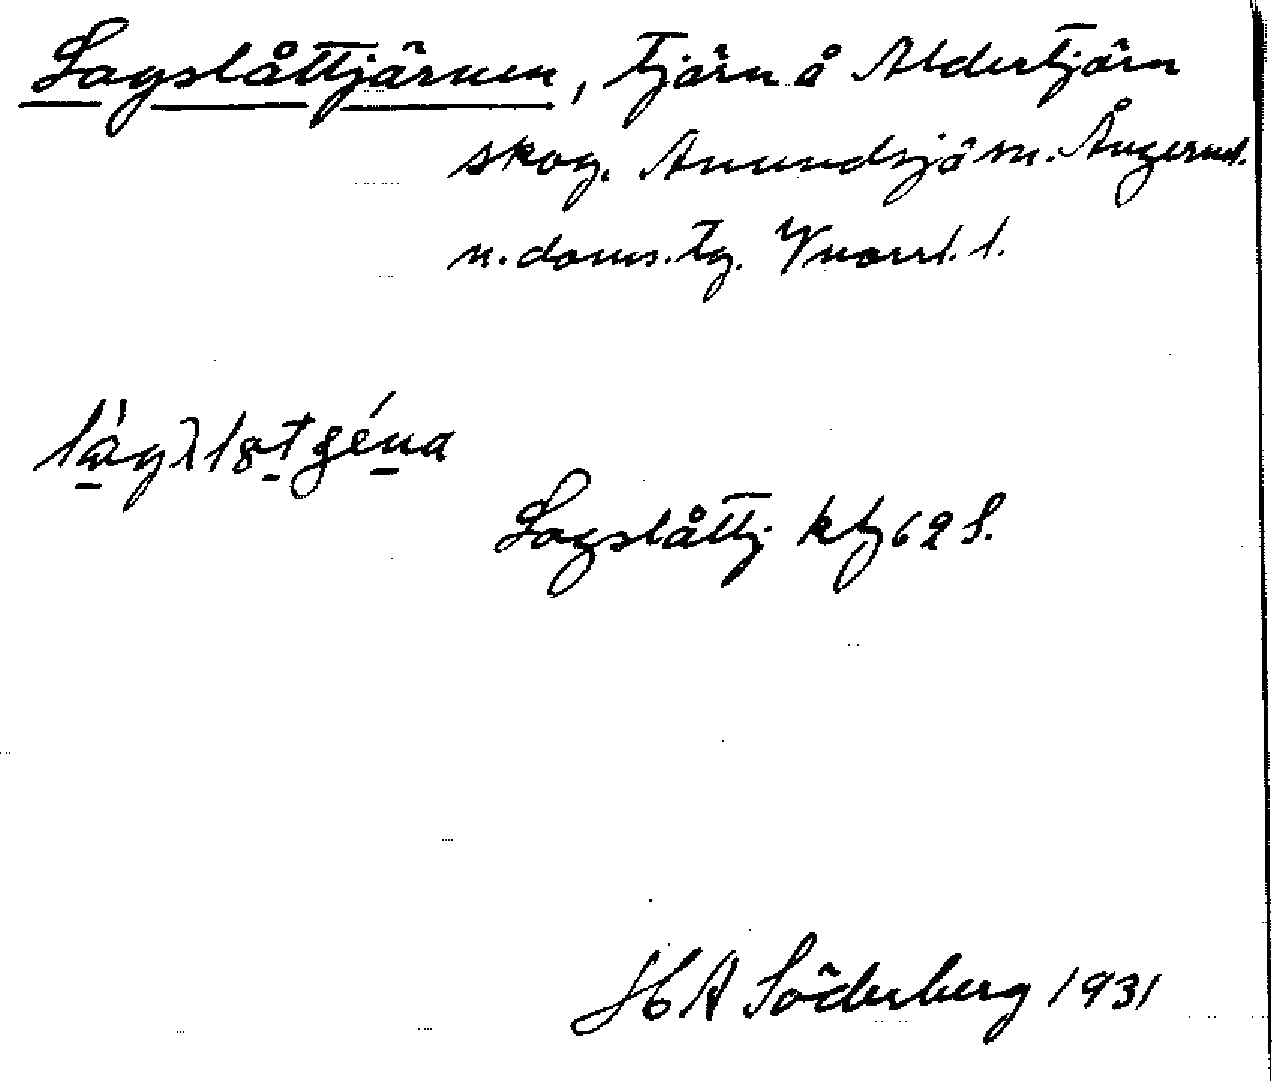 Lagslåttjärnen, tjärn å Aldertjärn
skog. Anundsjö sn. Ångerml.
n. doms. tg. Vnorrl. l.
Lagslåttj ktg 62 S.
H A Söderberg 1931